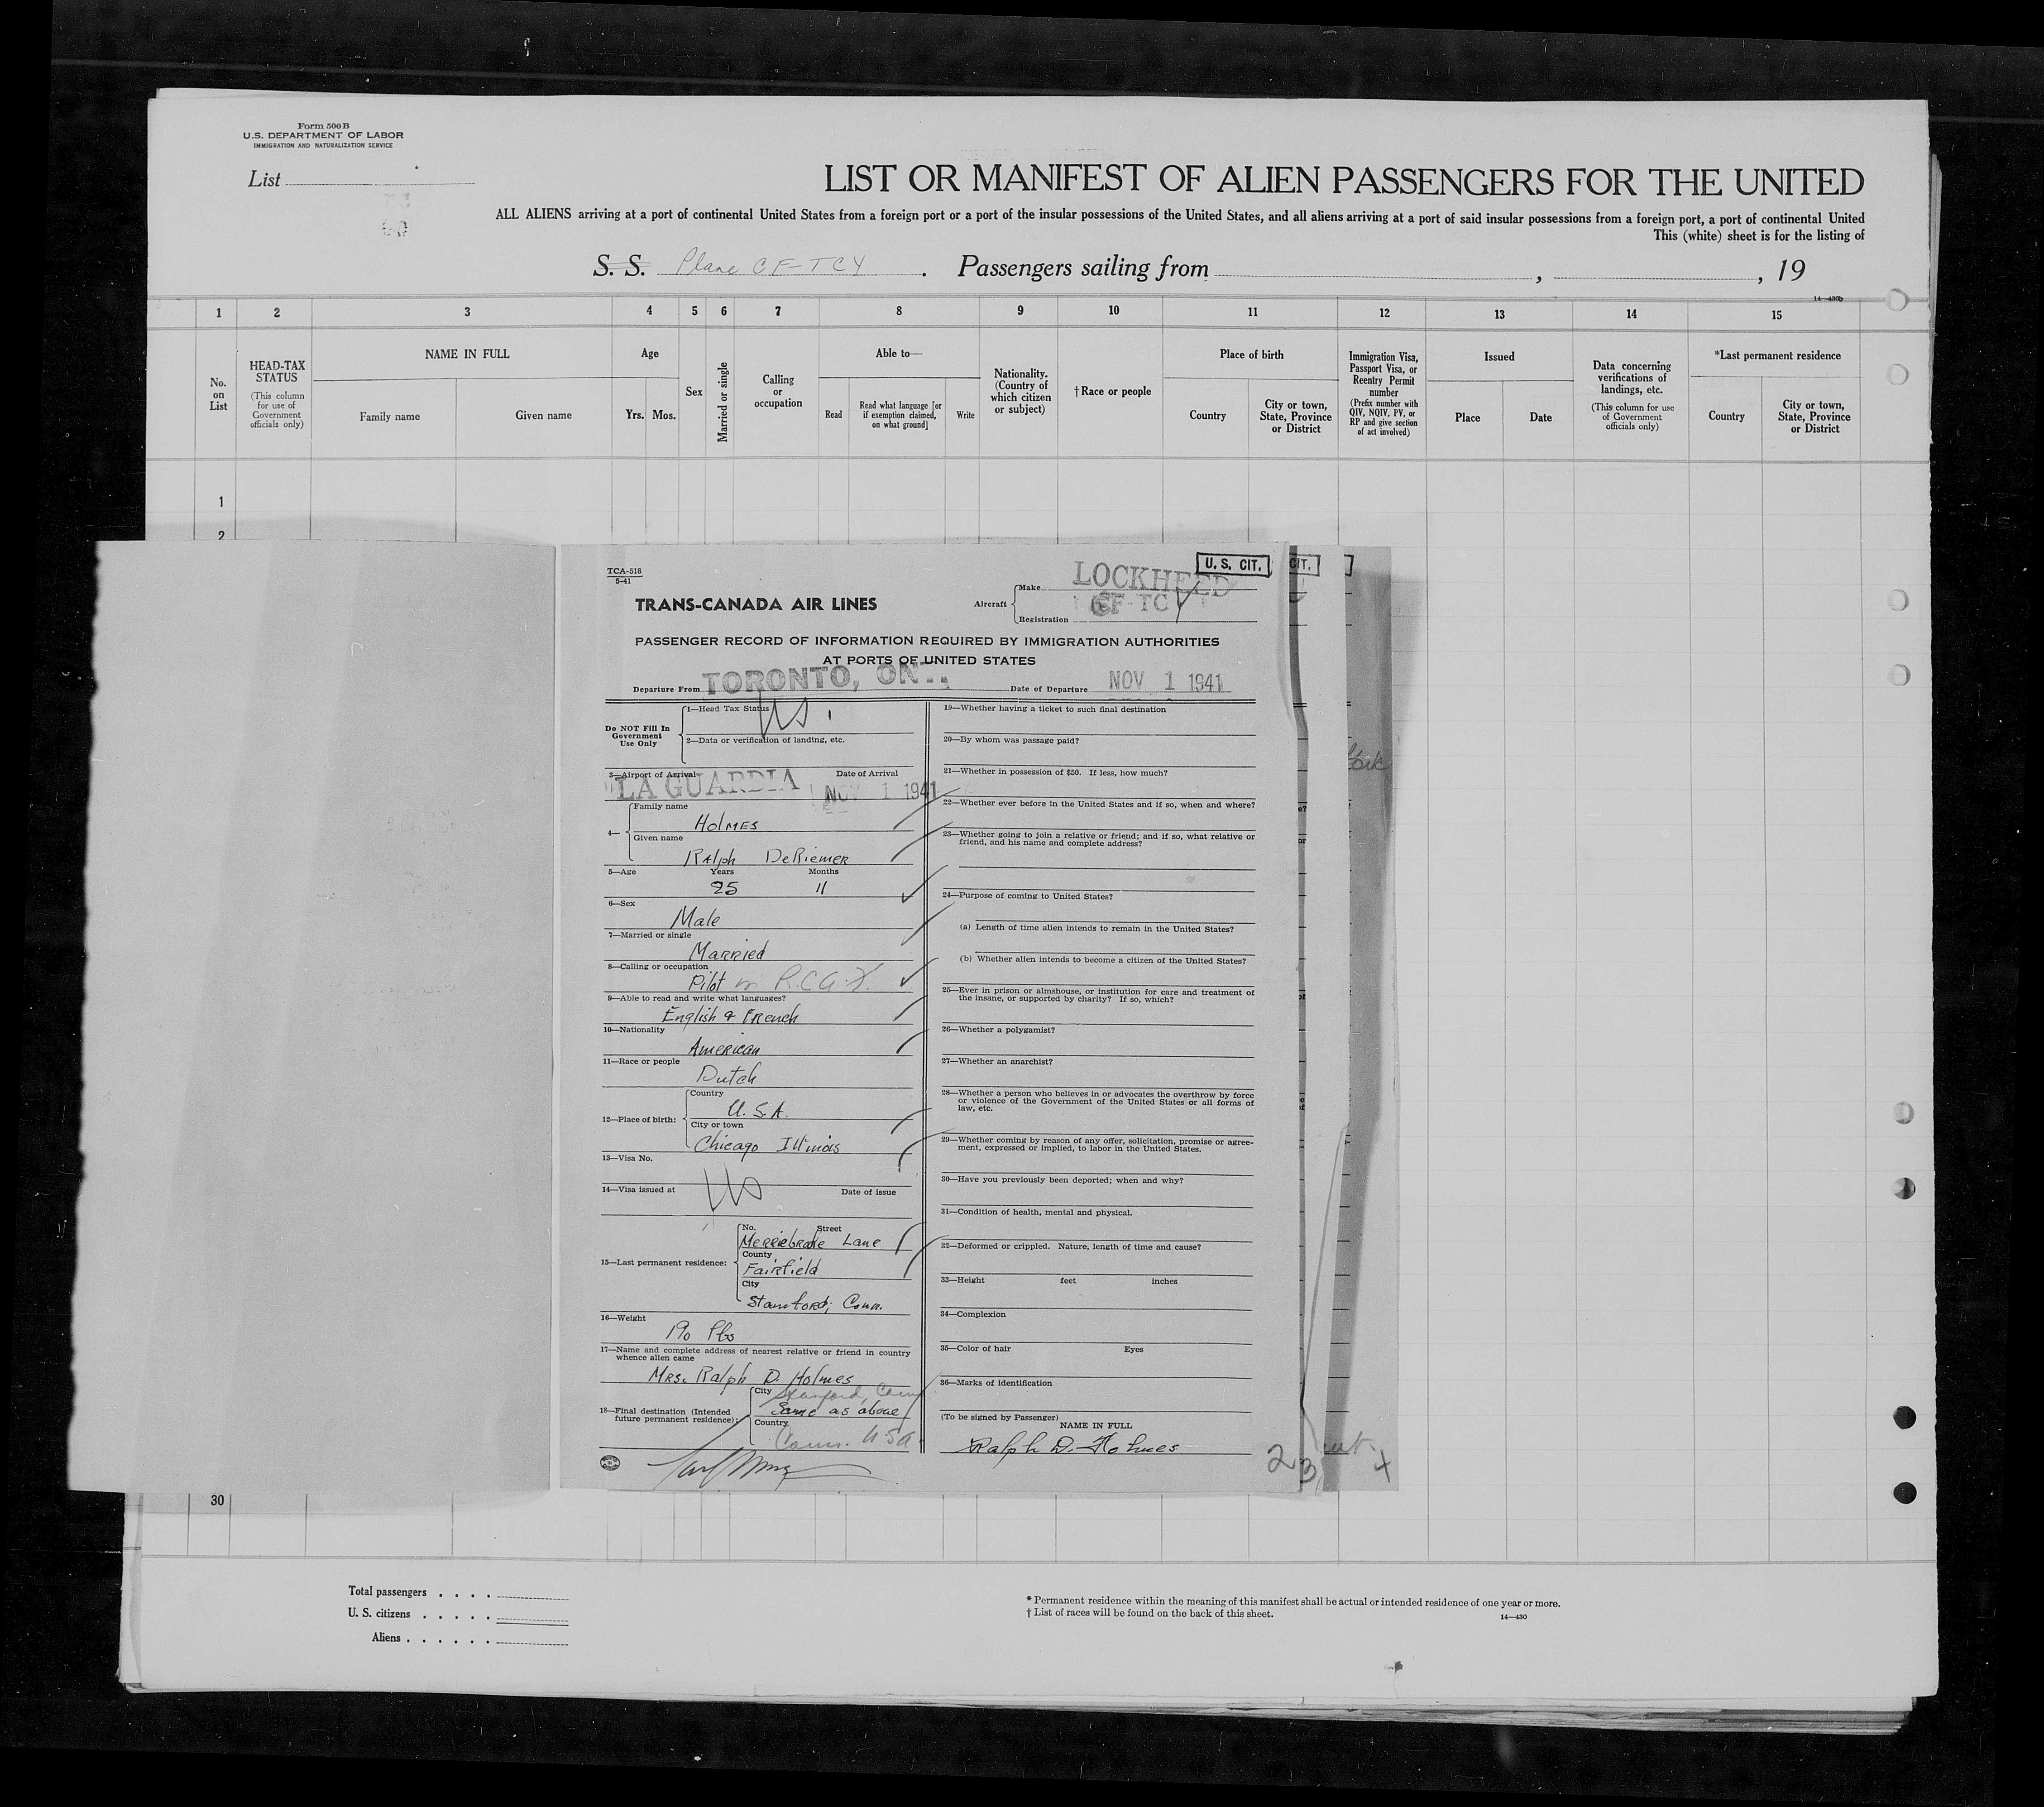 Form 500 B
U.S. DEPARTMENT OF LABOR
IMMIGRATION AND NATURALIZATION SERVICE
List
LIST OR MANIFEST OF ALIEN PASSENGERS FOR THE UNITED
ALL ALIENS arriving at a port of continental United States from a foreign port or a port of the insular possessions of the United States, and all aliens arriving at a port of said insular possessions from a foreign port, a port of continental United
This (white) sheet is for the listing of
S. S. Plane CF-TCY. Passengers sailing from , , 19
14—430b
1 2 3 4 5 6 7 8 9 10 11 12 13 14 15
No. on List
HEAD-TAX STATUS
(This column for use of Government officials only)
NAME IN FULL
Family name
Given name
Age
Yrs. Mos.
Sex
Married or single
Calling or occupation
Able to—
Read
Read what language [or if exemption claimed, on what ground]
Write
Nationality. (Country of which citizen or subject)
† Race or people
Place of birth
Country
City or town, State, Province or District
Immigration Visa, Passport Visa, or Reentry Permit number
(Prefix number with QIV, NQIV, PV, or RP and give section of act involved)
Issued
Place
Date
Data concerning verifications of landings, etc.
(This column for use of Government officials only)
*Last permanent residence
Country
City or town, State, Province or District
1
2
TCA-518
5-41
U. S. CIT.
CIT.
TRANS-CANADA AIR LINES
Aircraft
Make LOCKHEED
Registration CF-TC
PASSENGER RECORD OF INFORMATION REQUIRED BY IMMIGRATION AUTHORITIES
AT PORTS OF UNITED STATES
Departure From TORONTO, ON
Date of Departure NOV 1 1941
Do NOT Fill In Government Use Only
1—Head Tax Status US
2—Data or verification of landing, etc.
3—Airport of Arrival Date of Arrival
LA GUARDIA NOV 1 1941
4—
Family name
HOLMES
Given name
Ralph DeRiemer
5—Age Years Months
25 11
6—Sex
Male
7—Married or single
Married
8—Calling or occupation
Pilot in R.C.A.F.
9—Able to read and write what languages?
English & French
10—Nationality
American
11—Race or people
Dutch
12—Place of birth:
Country
U.S.A.
City or town
Chicago Illinois
13—Visa No.
14—Visa issued at US Date of issue
15—Last permanent residence:
No. Street
Merriebrooke Lane
County
Fairfield
City
Stamford, Conn.
16—Weight
190 lbs
17—Name and complete address of nearest relative or friend in country whence alien came
Mrs. Ralph D. Holmes
18—Final destination (Intended future permanent residence):
City Stamford, Conn
Same as above
Country
Conn. USA.
19—Whether having a ticket to such final destination
20—By whom was passage paid?
21—Whether in possession of $50. If less, how much?
22—Whether ever before in the United States and if so, when and where?
23—Whether going to join a relative or friend; and if so, what relative or friend, and his name and complete address?
24—Purpose of coming to United States?
(a) Length of time alien intends to remain in the United States?
(b) Whether alien intends to become a citizen of the United States?
25—Ever in prison or almshouse, or institution for care and treatment of the insane, or supported by charity? If so, which?
26—Whether a polygamist?
27—Whether an anarchist?
28—Whether a person who believes in or advocates the overthrow by force or violence of the Government of the United States or all forms of law, etc.
29—Whether coming by reason of any offer, solicitation, promise or agreement, expressed or implied, to labor in the United States.
30—Have you previously been deported; when and why?
31—Condition of health, mental and physical.
32—Deformed or crippled. Nature, length of time and cause?
33—Height feet inches
34—Complexion
35—Color of hair Eyes
36—Marks of identification
(To be signed by Passenger)
NAME IN FULL
Ralph D. Holmes
2
3
4
30
Total passengers
U. S. citizens
Aliens
* Permanent residence within the meaning of this manifest shall be actual or intended residence of one year or more.
† List of races will be found on the back of this sheet.
14—430